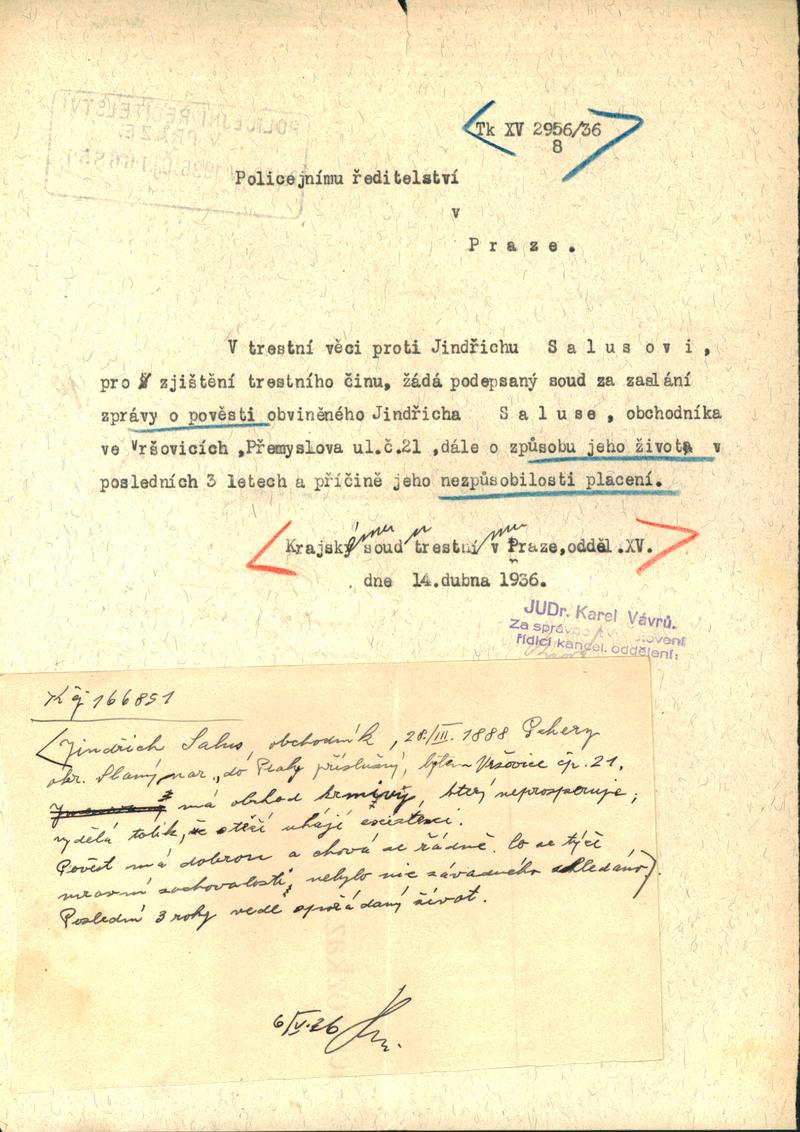 Tk XV 2956/36
8
Policejnímu ředitelství
v
Praze.
V trestní věci proti Jindřichu Salusovi,
pro zjištění trestního činu, žádá podepsaný soud za zaslání
zprávy o pověsti obviněného Jindřicha Saluse, obchodníka
ve Vršovicích ,Přemyslova ul.č.21 ,dále o způsobu jeho života v
posledních 3 letech a příčině jeho nezpůsobilosti placení.
Krajskému soudu trestnímu v Praze,odděl.XV.
dne 14.dubna 1936.
JUDr. Karel Vávrů.
Za správnost vyhotovení
řídící kancel. oddělení:
K čj 166851
Jindřich Salus, obchodník, 28/III. 1888 Pchery
okr. Slaný nar., do Prahy příslušný, bytem Vršovice čp. 21,
má obchod krmivy, který neprosperuje;
vydělá tolik, že stěží uhájí existenci.
Pověst má dobrou a chová se řádně. Co se týče
mravní zachovalosti, nebylo nic závadného shledáno.
Poslední 3 roky vede spořádaný život.
6/V.36